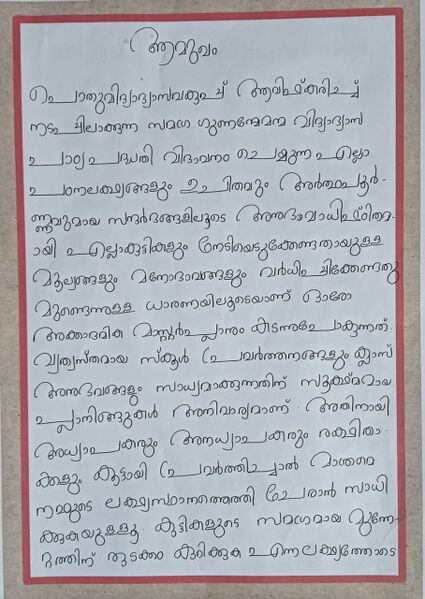 ആമുഖം
പൊതുവിദ്യാഭ്യാസവകുപ്പ് ആവിഷ്കരിച്ച്
നടപ്പിലാക്കുന്ന സമഗ്ര ഗുണമേന്മ വിദ്യാഭ്യാസ
പാഠ്യ പദ്ധതി വിഭാവനം ചെയ്യുന്ന എല്ലാ
പഠനലക്ഷ്യങ്ങളും ഉചിതവും അർത്ഥപൂർ-
ണ്ണവുമായ സന്ദർഭങ്ങളിലൂടെ അനുഭവാധിഷ്ഠിതമ-
ായി എല്ലാകുട്ടികളും നേടിയെടുക്കേണ്ടതായുള്ള
മൂല്യങ്ങളും മനോഭാവങ്ങളും വർധിപ്പിക്കേണ്ടതു
മുണ്ടെന്നുള്ള ധാരണയിലൂടെയാണ് ഓരോ
അക്കാദമിക മാസ്റ്റർപ്ലാനും കടന്നുപോകുന്നത്.
വ്യത്യസ്തമായ സ്കൂൾ പ്രവർത്തനങ്ങളും ക്ലാസ്
അനുഭവങ്ങളും സാധ്യമാക്കുന്നതിന് സൂക്ഷ്മമായ
പ്ലാനിങ്ങുകൾ അനിവാര്യമാണ്. അതിനായി
അധ്യാപകരും അനധ്യാപകരും രക്ഷിതാ-
ക്കളും കൂട്ടായി പ്രവർത്തിച്ചാൽ മാത്രമെ
നമ്മുടെ ലക്ഷ്യസ്ഥാനത്തെത്തി ചേരാൻ സാധി
ക്കുകയുള്ളൂ. കുട്ടികളുടെ സമഗ്രമായ മുന്നേ-
റ്റത്തിന് തുടക്കം കുറിക്കുക എന്ന ലക്ഷ്യത്തോടെ